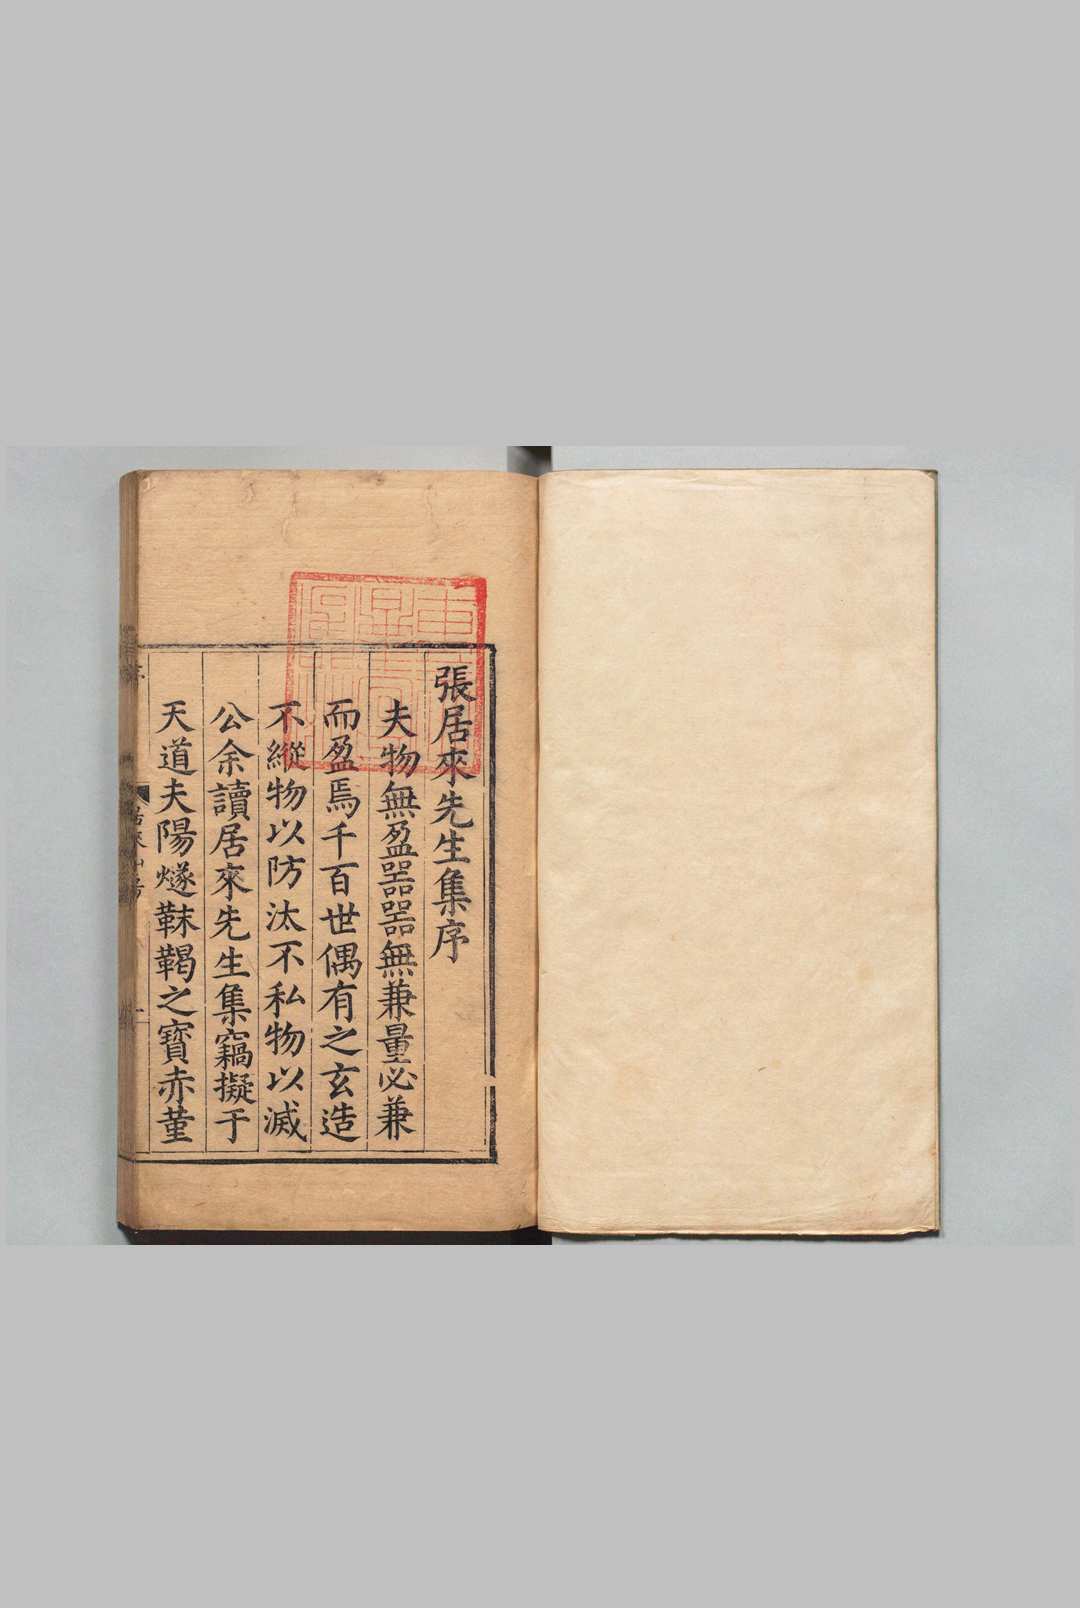 張居來先生集序
夫物無盈器器無兼量必兼
而盈焉千百世偶有之玄造
不縱物以防汰不私物以滅
公余讀居來先生集竊擬于
天道夫陽燧靺鞨之寶赤堇
居來山房